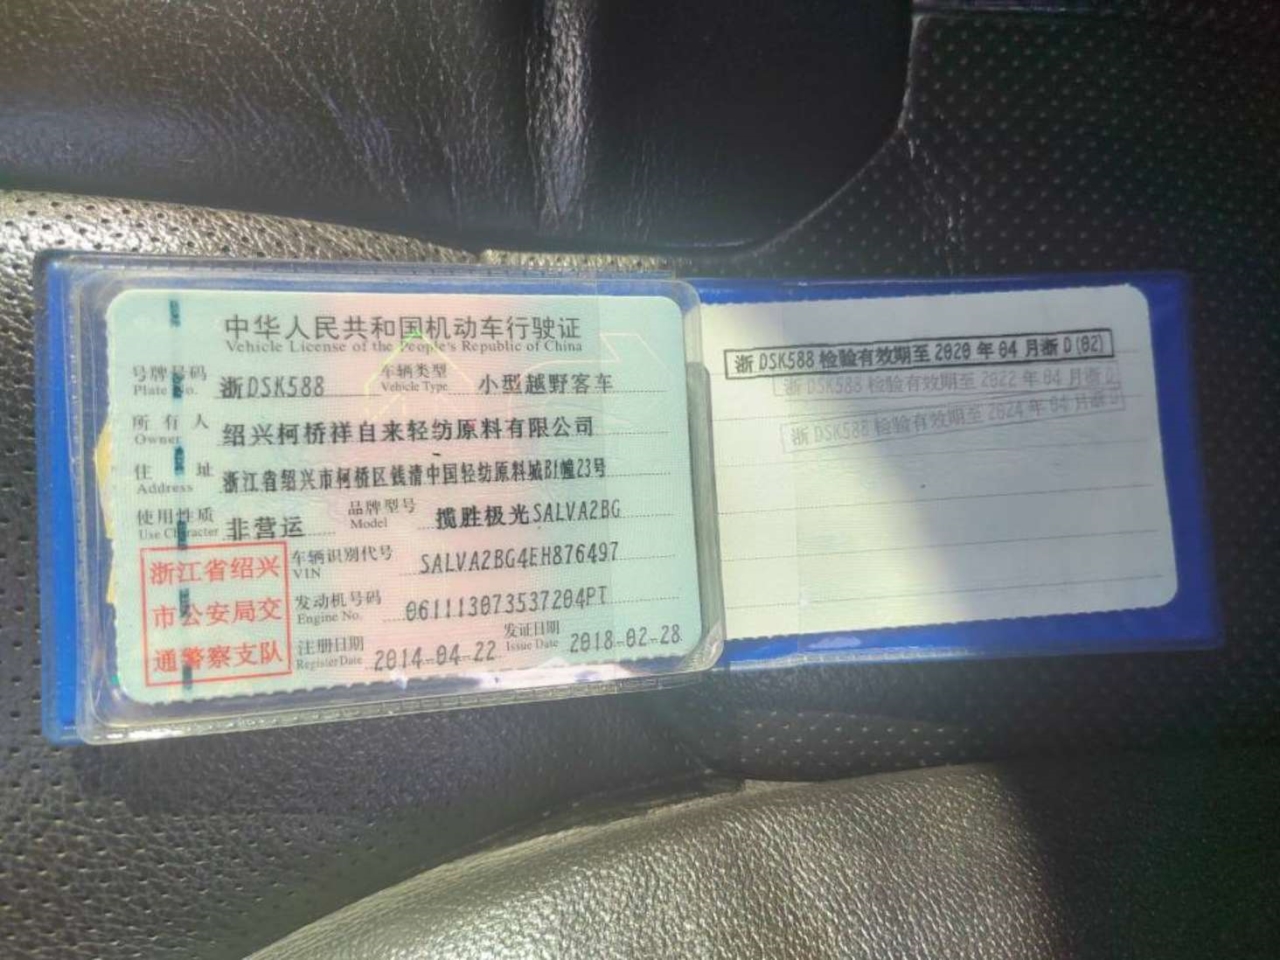 中华人民共和国机动车行驶证
Vehicle License of the People's Republic of China
号牌号码 浙DSK588 车辆类型 小型越野客车
Plate No. Vehicle Type
所有人 绍兴柯桥祥自来轻纺原料有限公司
Owner
住址 浙江省绍兴市柯桥区钱清中国轻纺原料城B1幢23号
Address
使用性质 非营运 品牌型号 揽胜极光SALVA2BG
Use Character Model
车辆识别代号 SALVA2BG4EH876497
VIN
发动机号码 061113073537204PT
Engine No.
注册日期 2014-04-22 发证日期 2018-02-28
Register Date Issue Date
浙江省绍兴
市公安局交
通警察支队
浙DSK588检验有效期至2020年04月浙D(02)
浙DSK588检验有效期至2022年04月浙D
浙DSK588检验有效期至2024年04月浙D